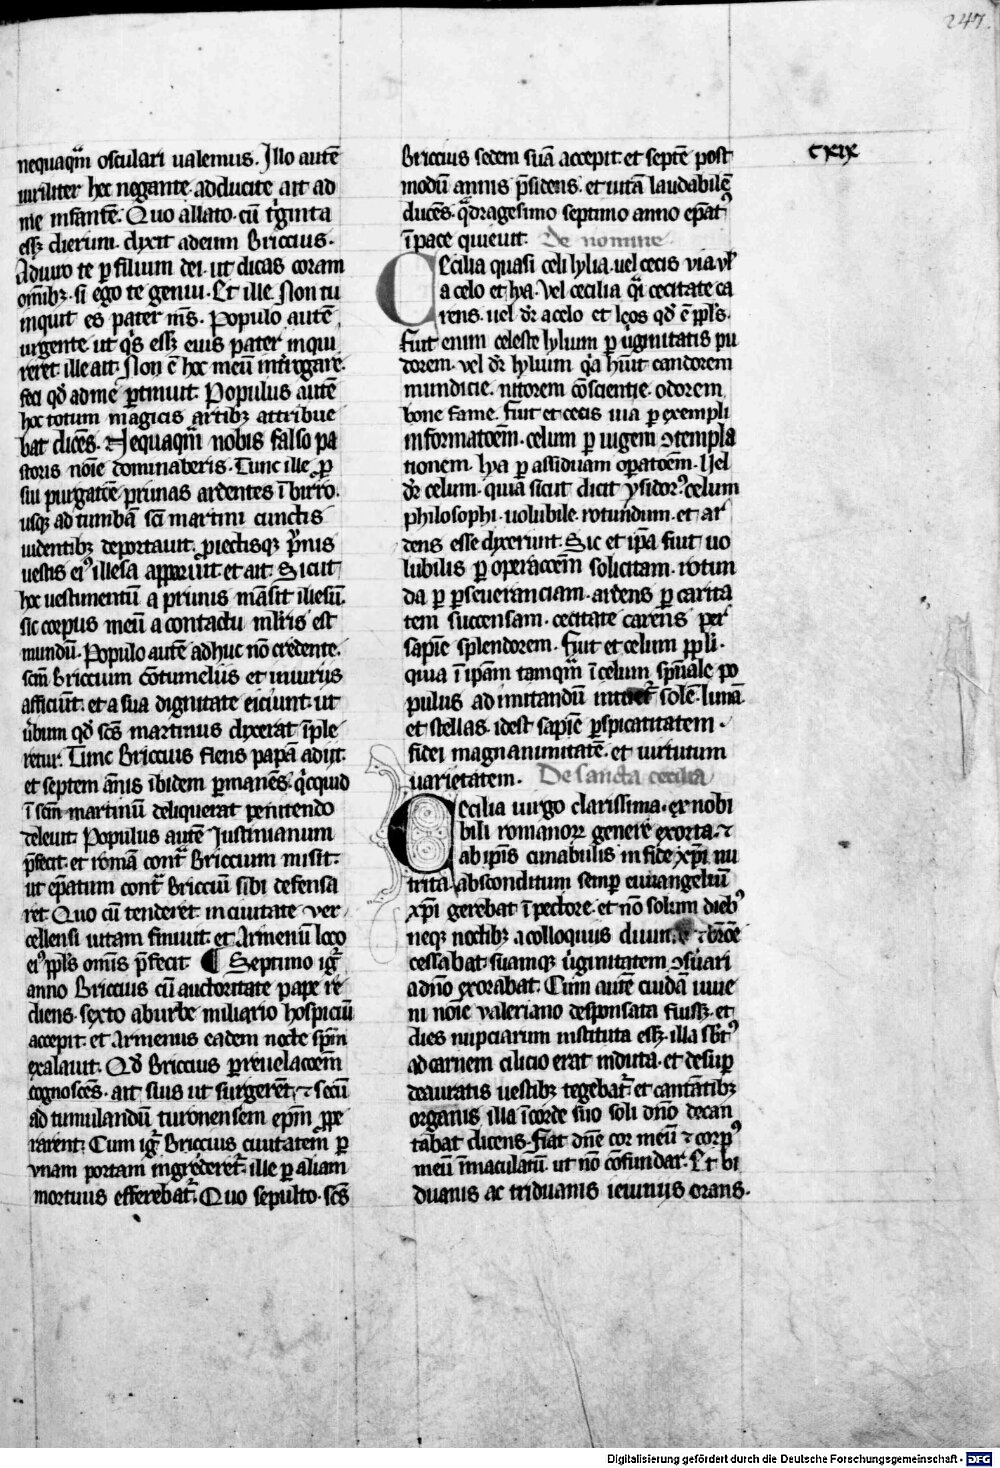 247.
nequaqm̃ osculari ualemus. Illo autē
uiriliter hoc negante. adducite ait ad
me infantē. Quo allato. cū tͥginta
essꝫ dierum. dyxit adeum Briccius.
Adiuro te ꝑ filium dei. ut dicas coram
om̄ibꝫ. si ego te genui. Et ille Non tu
inquit es pater ms̄. Populo autē
urgente ut qͥs essꝫ eius pater inqui
reret. ille ait. Non ē hoc meū int̾rogare.
feci qd̛ ad me ꝑtinuit. Populus autē
hoc totum magicis artibꝫ attribue
bat dicēs. Nequaqm̃ nobis falso pa
storis noīe dominaberis. Tunc ille ꝓ
sui purgatōe prunas ardentes ī birro.
usqꝫ ad tumbā scī martini cunctis
uidentibꝫ deportauit. ꝓiectisqꝫ pͥnis
uestis eiꝰ illesa apparuit. et ait. Sicut
hoc uestimentū a prunis māsit illesū.
sic corpus meū a contactu mlīris est
mundū. Populo autē adhuc nō credente.
scm̄ Briccium cōtumeliis et iniuriis
afficiūt. et a sua dignitate eiciunt. ut
ūbum qd̛ scs̄ martinus dyxerat īple
retur. Tunc Briccius flens papā adiit.
et septem ānis ibidem ꝑmanēs. qͥcquid
ī scm̄ martinū deliquerat penitendo
deleuit. Populus autē Iustinianum
p̄fecit. et romā contͣ Briccium misit.
ut ep̄atum contͣ Bricciū sibi defensa
ret Quo cū tenderet in ciuitate ver
cellensi uitam finiuit. et Armenū loco
eiꝰ ppl̄s omīs p̄fecit ¶ Septimo igͥ
anno Briccius cū auctoritate pape re
diens. sexto aburbe miliario hospiciū
accepit. et Armenus eadem nocte spm̄
exalauit. Qd̛ Briccius ꝑreuelacoēm
cognoscēs. ait suis ut surgerēt ⁊ secū
ad tumulandū turonensem epm̄ ꝓpe
rarent. Cum igͥ Briccius ciuitatem ꝑ
vnam portam ingrederet᷑. ille ꝑ aliam
mortuus efferebat᷑. Quo sepulto. scs̄
Briccius sedem suā accepit. et septē post
modū annis p̄sidens. et uitā laudabilē
ducēs. qͣdragesimo septimo anno ep̄atꝰ
ī pace quieuit. De nomine
CEcilia quasi celi lylia. uel cecis via vl̛
a celo et lya. Vel cecilia qͣi cecitate ca
rens. uel dr̄ a celo et leos qd̛ ē ppl̄s.
Fuit enim celeste lylium ꝑ ūginitatis pu
dorem. vel dr̄ lylium qͥa hūit candorem
mundicie. nitorem cōscientie. odorem
bone fame. Fuit et cecis uia ꝑ exempli
informatoēm. celum ꝑ iugem ꝯtempla
tionem. lya ꝑ assiduam oꝑatoēm. Uel
dr̄ celum. quia sicut dicit ysidorꝰ. celum
philosophi. uolubile. rotundum. et ar
dens esse dyxerunt. Sic et ip̄a fuit uo
lubilis ꝑ operacoēm solicitam. rotun
da ꝑ ꝑseueranciam. ardens ꝑ carita
tem succensam. cecitate carens per
sapīe splendorem. Fuit et celum ppl̄i.
quia ī ipam tamqm̃ ī celum spūale po
pulus ad imitandū solē. lunā
et stellas. idest sapīe ꝑspicatitatem.
fidei magnanimitatē. et uirtutum
uarietatem. De sancta cecilia
CEcilia uirgo clarissima. ex nobi
bili romanoꝝ genere exorta. ⁊
ab ipīs cunabulis in fide xp̄i nu
trita. absconditum semꝑ euuangeliū
xp̄i gerebat ī pectore. et nō solum diebꝰ
neqꝫ noctibꝫ a colloquiis
cessabat. suamqꝫ ūginitatem ꝯsūari
a dn̄o exorabat. Cum autē cuidā iuue
ni noīe valeriano desponsata fuissꝫ. et
dies nupciarum instituta essꝫ. illa sbtꝰ
ad carnem cilicio erat induta. et desuꝑ
deauratis uestibꝫ tegebat᷑. et cantātibꝫ
organis. illa ī corde suo soli dn̄o decan
tabat dicens. Fiat dn̄e cor meū ⁊ corpꝰ
meū īmaculatū. ut nō cōfundar. Et bi
duanis ac triduanis ieiuniis orans.
cxix
Digitalisierung gefördert durch die Deutsche Forschungsgemeinschaft - DFG